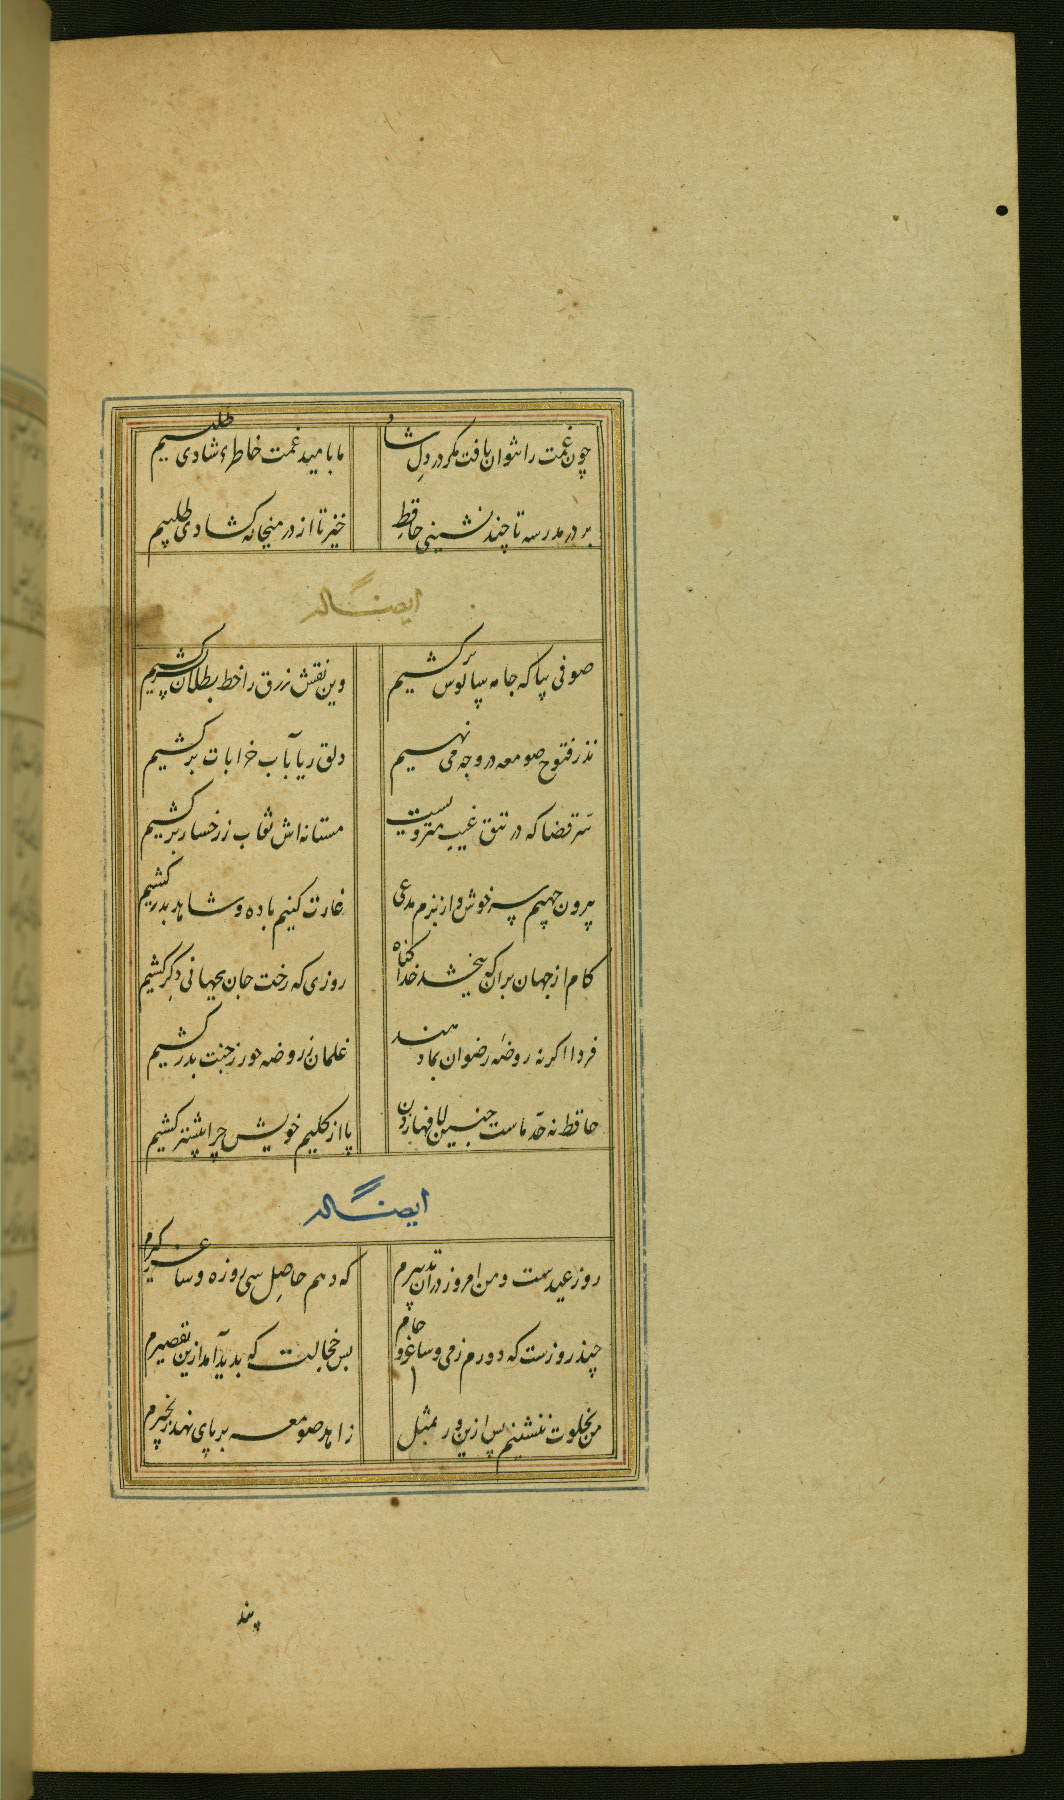 چون غمت را نتوان یافت مکر در دل شاد
ما بامید غمت خاطر شادی طلبیم
بر در مدرسه تا چند نشینی حافظ
خیز تا از در میخانه کشادی طلبیم
ایضا له
صوفی بیا که جامه سالوس برکشیم
وین نقش زرق را خط بطلان بسر کشیم
نذر فتوح صومعه در وجه می نهیم
دلق ریا بآب خرابات برکشیم
سر قضا که در تتق غیب منزویست
مستانه اش نقاب ز رخسار برکشیم
بیرون جهیم سرخوش و از بزم مدعی
غارت کنیم باده و شاهد بدر کشیم
کام از جهان بران که ببخشد خدا کناه
روزی که رخت جان بجهانی دکر کشیم
فردا اکر نه روضه رضوان بما دهند
غلمان ز روضه حور ز جنت بدر کشیم
حافظ نه حد ماست چنین لافها زدن
پا از کلیم خویش چرا بیشتر کشیم
ایضا له
روز عیدست و من امروز در آن تدبیرم
که دهم حاصل سی روزه و ساغر کیرم
چند روزست که دورم ز می و ساغر و جام
بس خجالت که بدید آمد ازین تقصیرم
من بخلوت ننشینم پس ازین ور بمثل
زاهد صومعه بر پای نهد زنجیرم
پند